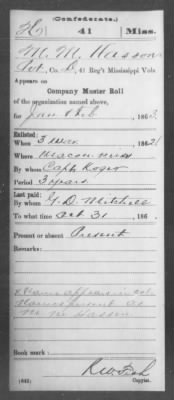 (Confederate.)
H 41 Miss.
M. M. Hasson
Pvt, Co. B, 41 Reg't Mississippi Vols.
Appears on
Company Muster Roll
of the organization named above,
for Jan & Feb, 1863.
Enlisted:
When 3 Mar, 1862
Where Macon Miss
By whom Capt Roger
Period 3 years
Last paid:
By whom G. D. Mitchell
To what time Oct 31, 186
Present or absent Present
Remarks:
x Name appears in col.
Names present as
M. M. Hasson
Book mark:
(642) Copyist.